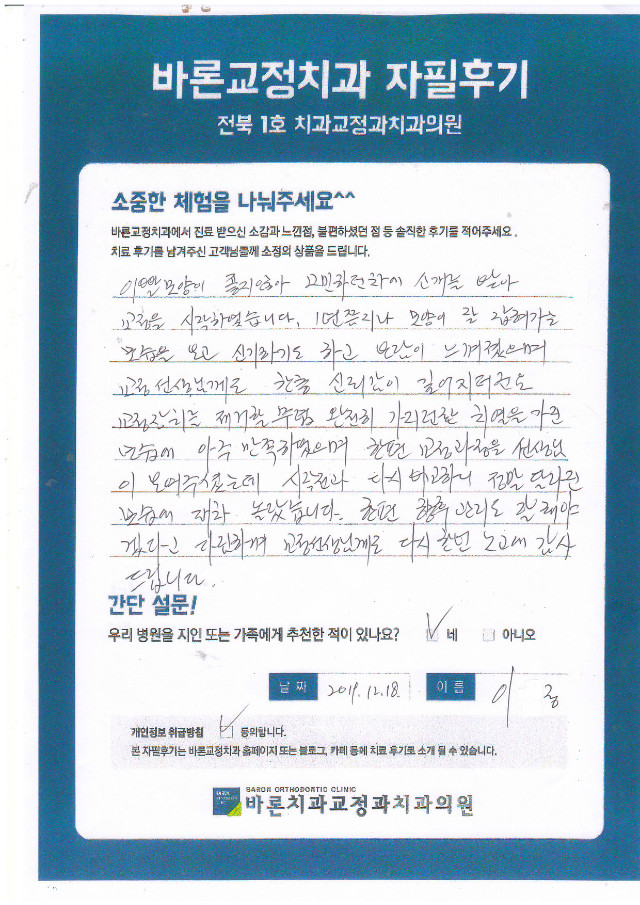 바론교정치과 자필후기
전북 1호 치과교정과치과의원
소중한 체험을 나눠주세요^^
바른교정치과에서 진료 받으신 소감과 느낀점, 불편하셨던 점 등 솔직한 후기를 적어주세요.
치료 후기를 남겨주신 고객님들께 소정의 상품을 드립니다.
이빨모양이 좋지않아 고민하던차에 소개를 받아
교정을 시작하였습니다. 1년쯤지나 모양이 잘 잡혀가는
모습을 보고 신기하기도 하고 보람이 느껴졌으며
교정선생님께도 한층 신뢰감이 깊어지더군요
교정장치를 제거할 무렵 완전히 가지런한 치열을 가진
모습에 아주 만족하였으며 한편 교정과정을 선생님
이 보여주셨는데 시작전과 다시 비교하니 정말 달라진
모습에 재차 놀랐습니다. 한편 향후 관리도 잘 해야
겠다고 다짐하며 교정선생님께도 다시 한번 노고에 감사
드립니다.
간단 설문!
우리 병원을 지인 또는 가족에게 추천한 적이 있나요? 네 아니오
날 짜 2019.12.18. 이 름 이 종
개인정보 취급방침 동의합니다.
본 자필후기는 바론교정치과 홈페이지 또는 블로그, 카페 등에 치료 후기로 소개 될 수 있습니다.
BARON ORTHODONTIC CLINIC
바론치과교정과치과의원